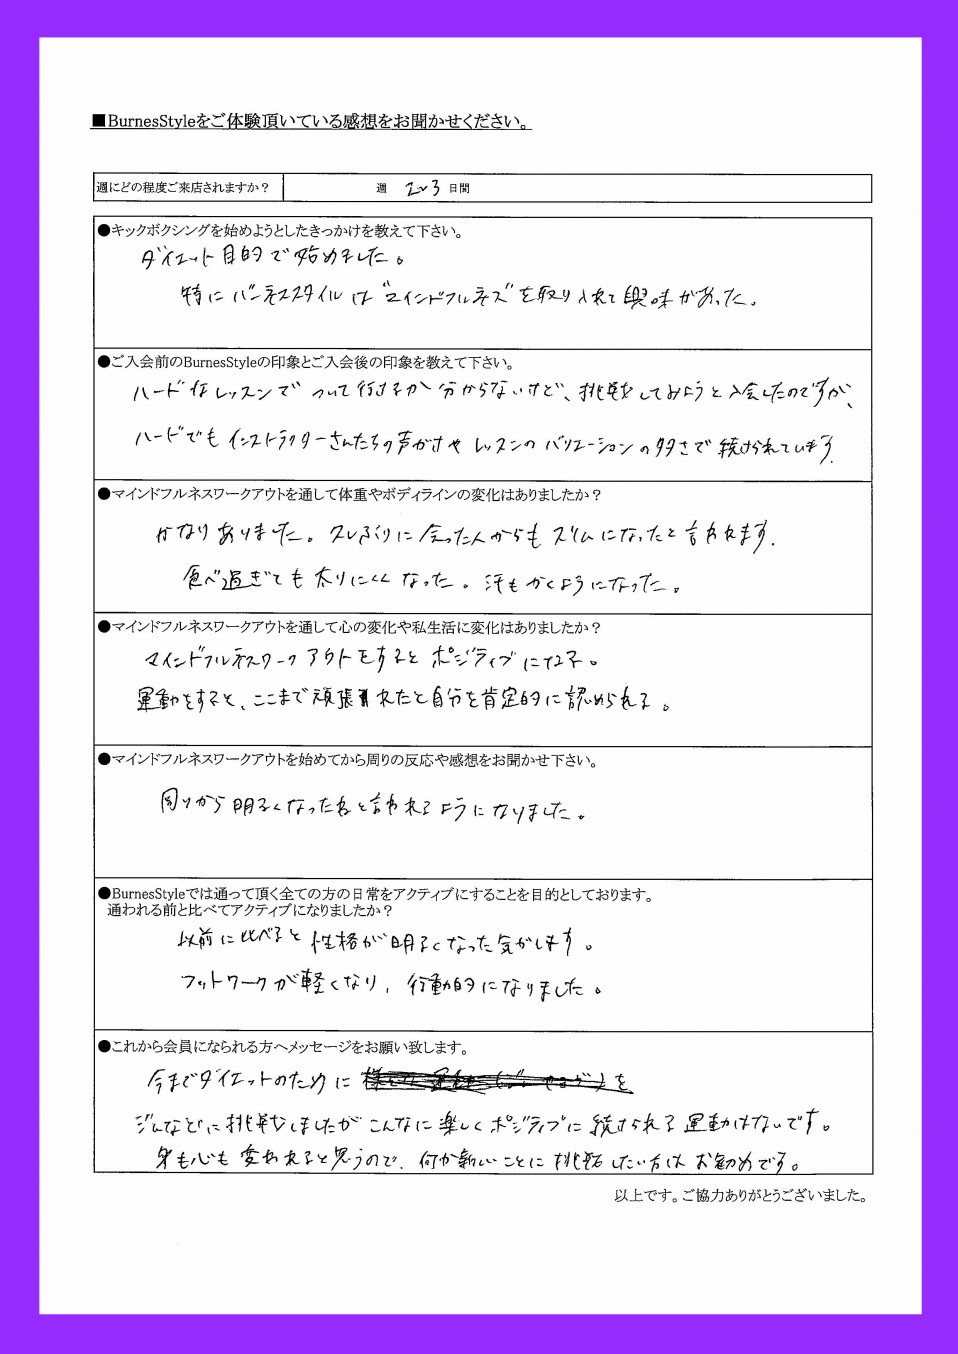 ■BurnesStyleをご体験頂いている感想をお聞かせください。
週にどの程度ご来店されますか？ 週 2~3 日間
●キックボクシングを始めようとしたきっかけを教えて下さい。
ダイエット目的で始めました。
特にバーネススタイルは"マインドフルネス"を取り入れて興味があった。
●ご入会前のBurnesStyleの印象とご入会後の印象を教えて下さい。
ハードなレッスンでついて行けるか分からないけど、挑戦してみようと入会したのですが、
ハードでもインストラクターさんたちの声がけやレッスンのバリエーションの多さで続けられています。
●マインドフルネスワークアウトを通して体重やボディラインの変化はありましたか？
かなりありました。久しぶりに会った人からもスリムになったと言われます。
食べ過ぎても太りにくくなった。汗もかくようになった。
●マインドフルネスワークアウトを通して心の変化や私生活に変化はありましたか？
マインドフルネスワークアウトをするとポジティブになる。
運動をすると、ここまで頑張れたと自分を肯定的に認められる。
●マインドフルネスワークアウトを始めてから周りの反応や感想をお聞かせ下さい。
周りから明るくなったねと言われるようになりました。
●BurnesStyleでは通って頂く全ての方の日常をアクティブにすることを目的としております。
通われる前と比べてアクティブになりましたか？
以前に比べると性格が明るくなった気がします。
フットワークが軽くなり、行動的になりました。
●これから会員になられる方へメッセージをお願い致します。
今までダイエットのために
ジムなどに挑戦しましたがこんなに楽しくポジティブに続けられる運動はないです。
身も心も変われると思うので、何か新しいことに挑戦したい方はお勧めです。
以上です。ご協力ありがとうございました。